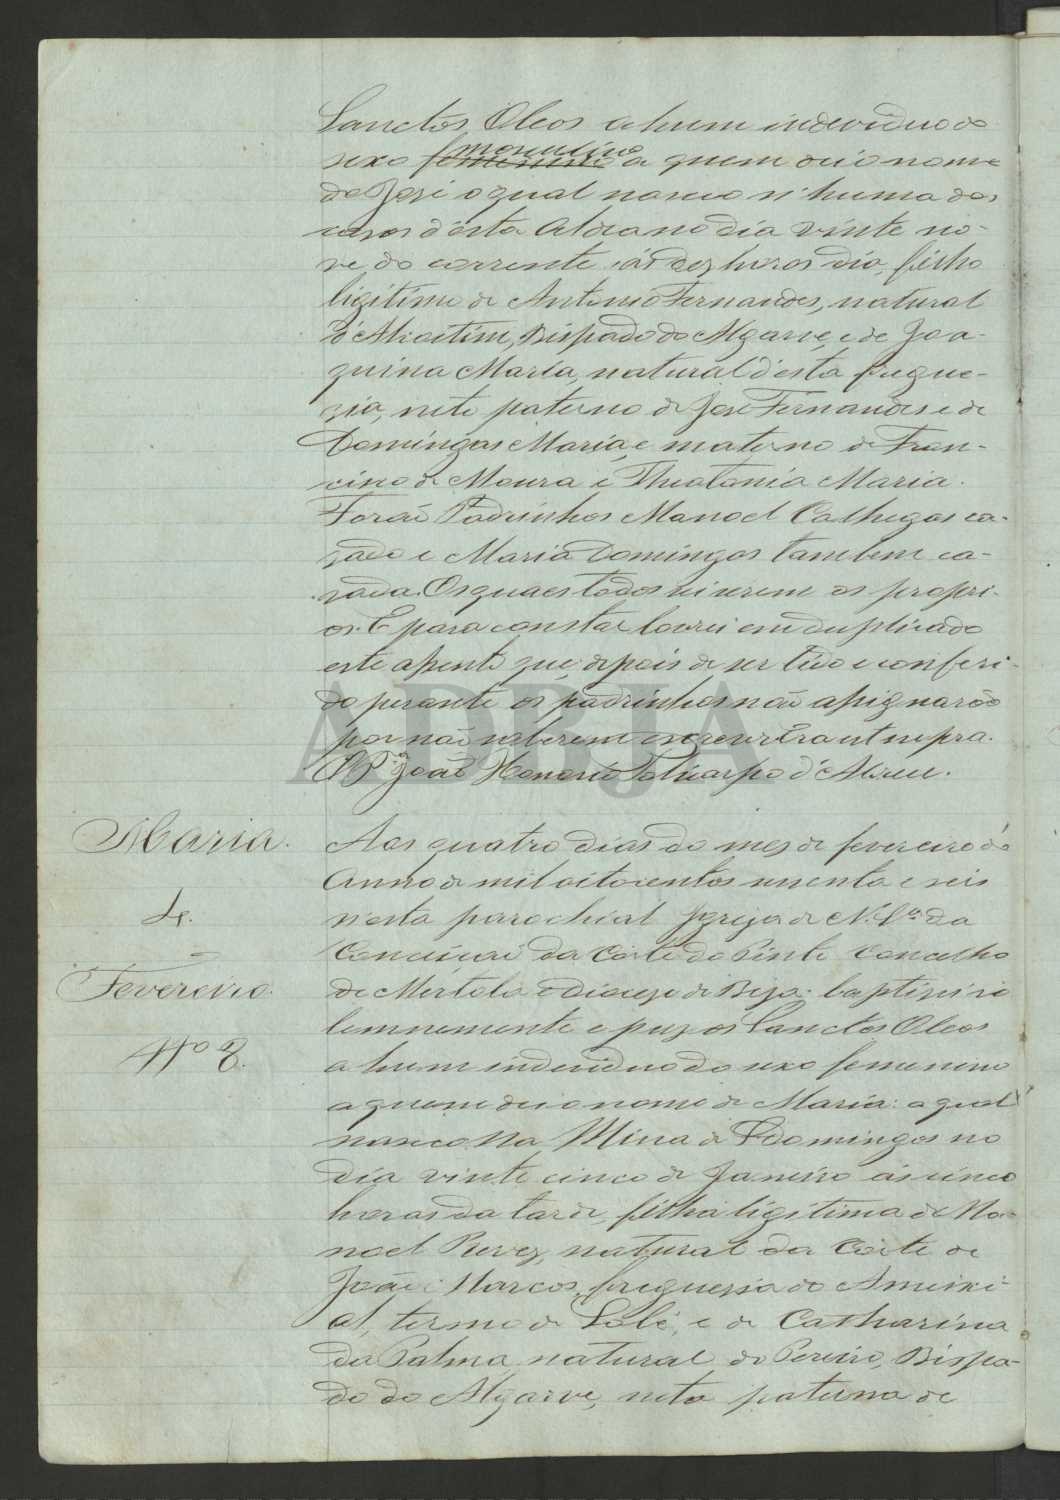 Sanctos Oleos a hum individuo do
sexo femenino masculino a quem dei o nome
de José o qual nasceo n'huma das
casas d'esta Aldea no dia vinte no-
ve do corrente, ás dez horas dia, filho
ligitimo de Antonio Fernandes, natural
d'Alcoitim, Bispado do Algarve, e de Joa-
quina Maria, natural d'esta fregue-
zia, neto paterno de José Fernandes e de
Domingas Maria, e materno de Fran-
cisco de Moura e Theatonia Maria.
Forão Padrinhos Manoel Calhegas ca-
zado e Maria Domingas tambem ca-
zada. Os quaes todos serem os propri-
os. E para constar lavrei em duplicado
este assento que, depois de ser lido e conferi-
do perante os padrinhos não assignarão
por não saberem escrever. Era ut supra.
O P.or João Honorio Policarpo d'Abreu.
Maria.
4.
=
Fevereiro.
Nº 8.
Aos quatro dias do mez de fevereiro do
Anno de mil oitocentos sesenta e seis
n'esta parochial Igreja de N. Sr.a da
Conceiçaõ da Corte do Pinto Concelho
de Mertola e Dioceze de Beja: baptisei so
lemnemente e puz os Sanctos Oleos
a hum individuo do sexo femenino
a quem dei o nome de Maria: a qual
nasceo na Mina de S. Domingos no
dia vinte cinco de Janeiro ás cinco
horas da tarde, filha ligitima de Ma-
noel Revez, natural da Corte de
João Marcos, freguezia do Ameixi-
al, termo de Lolé, e de Catharina
da Palma natural do Pereiro, Bispa-
do do Algarve, neta paterna de
ADBJA